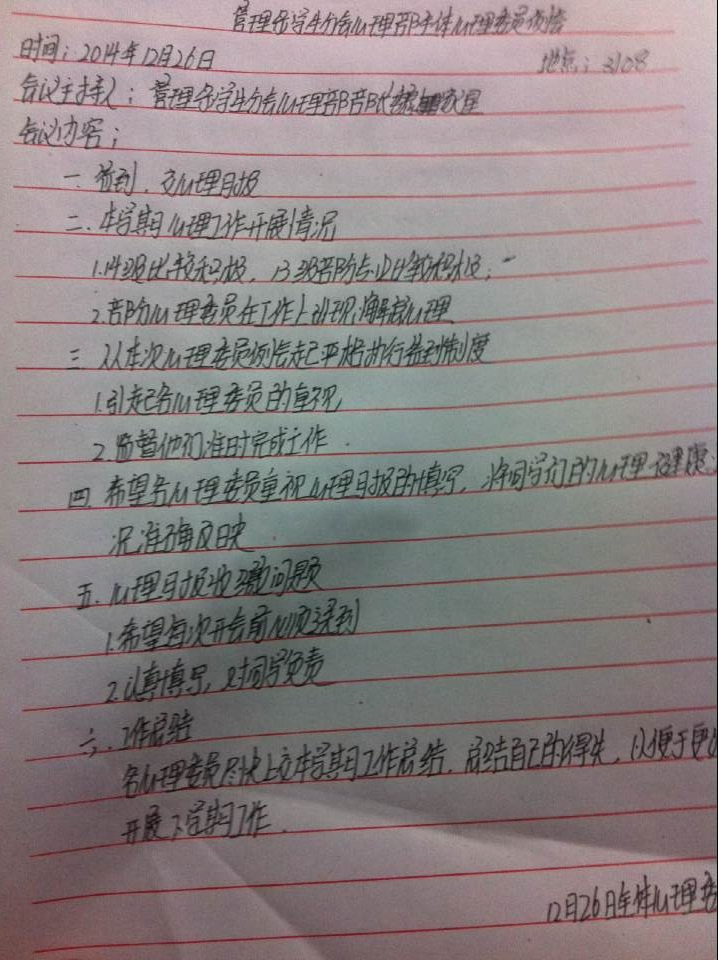 管理系学生分会心理部全体心理委员例会
时间：2014年12月26日 地点：3108
会议主持人：管理系学生分会心理部部长
会议内容：
一. 签到、交心理月报
二. 本学期心理工作开展情况
1.14级比较积极，13级部分专业比较积极；
2.部分心理委员在工作上出现懈怠心理
三. 从本次心理委员例会起严格执行签到制度
1.引起各心理委员的重视
2.监督他们准时完成工作.
四. 希望各心理委员重视心理月报的填写，将同学们的心理健康
况准确反映
五. 心理月报收缴问题
1.希望每次开会前必须交到
2.认真填写，对同学负责
六. 工作总结
各心理委员尽快上交本学期工作总结，总结自己的得失，以便于更
开展下学期工作.
12月26日全体心理委